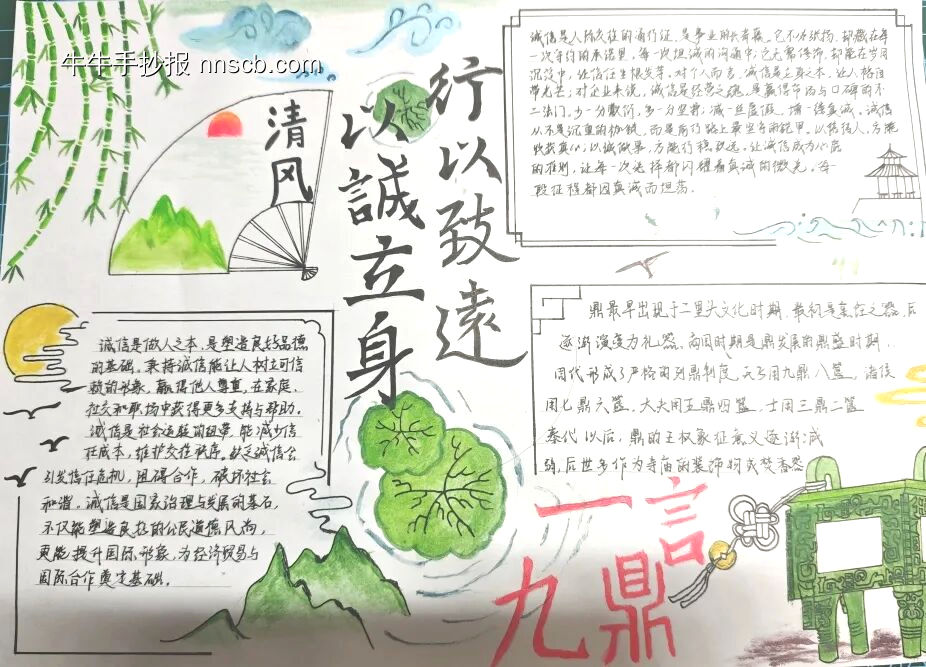 牛牛手抄报 nnscb.com
清风
行以致遠
以誠立身
诚信是人际交往的通行证，是事业的长青藤。它不必张扬，却藏在每
一次守约的承诺里，每一次坦诚的沟通中；它无需修饰，却能在岁月
沉淀中，让信任生根发芽。对个人而言，诚信是立身之本，让人格自
带光芒；对企业来说，诚信是经营之魂，是赢得市场与口碑的不
二法门。少一分敷衍，多一分坚持，减一丝虚假，增一缕真诚。诚信
从不是沉重的枷锁，而是前行路上最坚实的铠甲。以信待人，方能
收获真心；以诚做事，方能行稳致远。让诚信成为心底
的准则，让每一次选择都闪耀着真诚的微光，每一
段征程都因真诚而坦荡。
诚信是做人之本，是塑造良好品德
的基础。秉持诚信能让人树立可信
赖的形象，赢得他人尊重，在家庭、
社交和职场中获得更多支持与帮助。
诚信是社会运转的纽带，能减少信
任成本，维护交往秩序。缺乏诚信会
引发信任危机，阻碍合作，破坏社会
和谐。诚信是国家治理与发展的基石，
不仅能塑造良好的公民道德风尚，
更能提升国际形象，为经济贸易与
国际合作奠定基础。
鼎最早出现于二里头文化时期，最初是烹饪之器，后
逐渐演变为礼器。商周时期是鼎发展的鼎盛时期，
周代形成了严格的列鼎制度，天子用九鼎八簋，诸侯
用七鼎六簋，大夫用五鼎四簋，士用三鼎二簋
秦代以后，鼎的王权象征意义逐渐减
弱，后世多作为寺庙的装饰物或焚香器
一言
九鼎